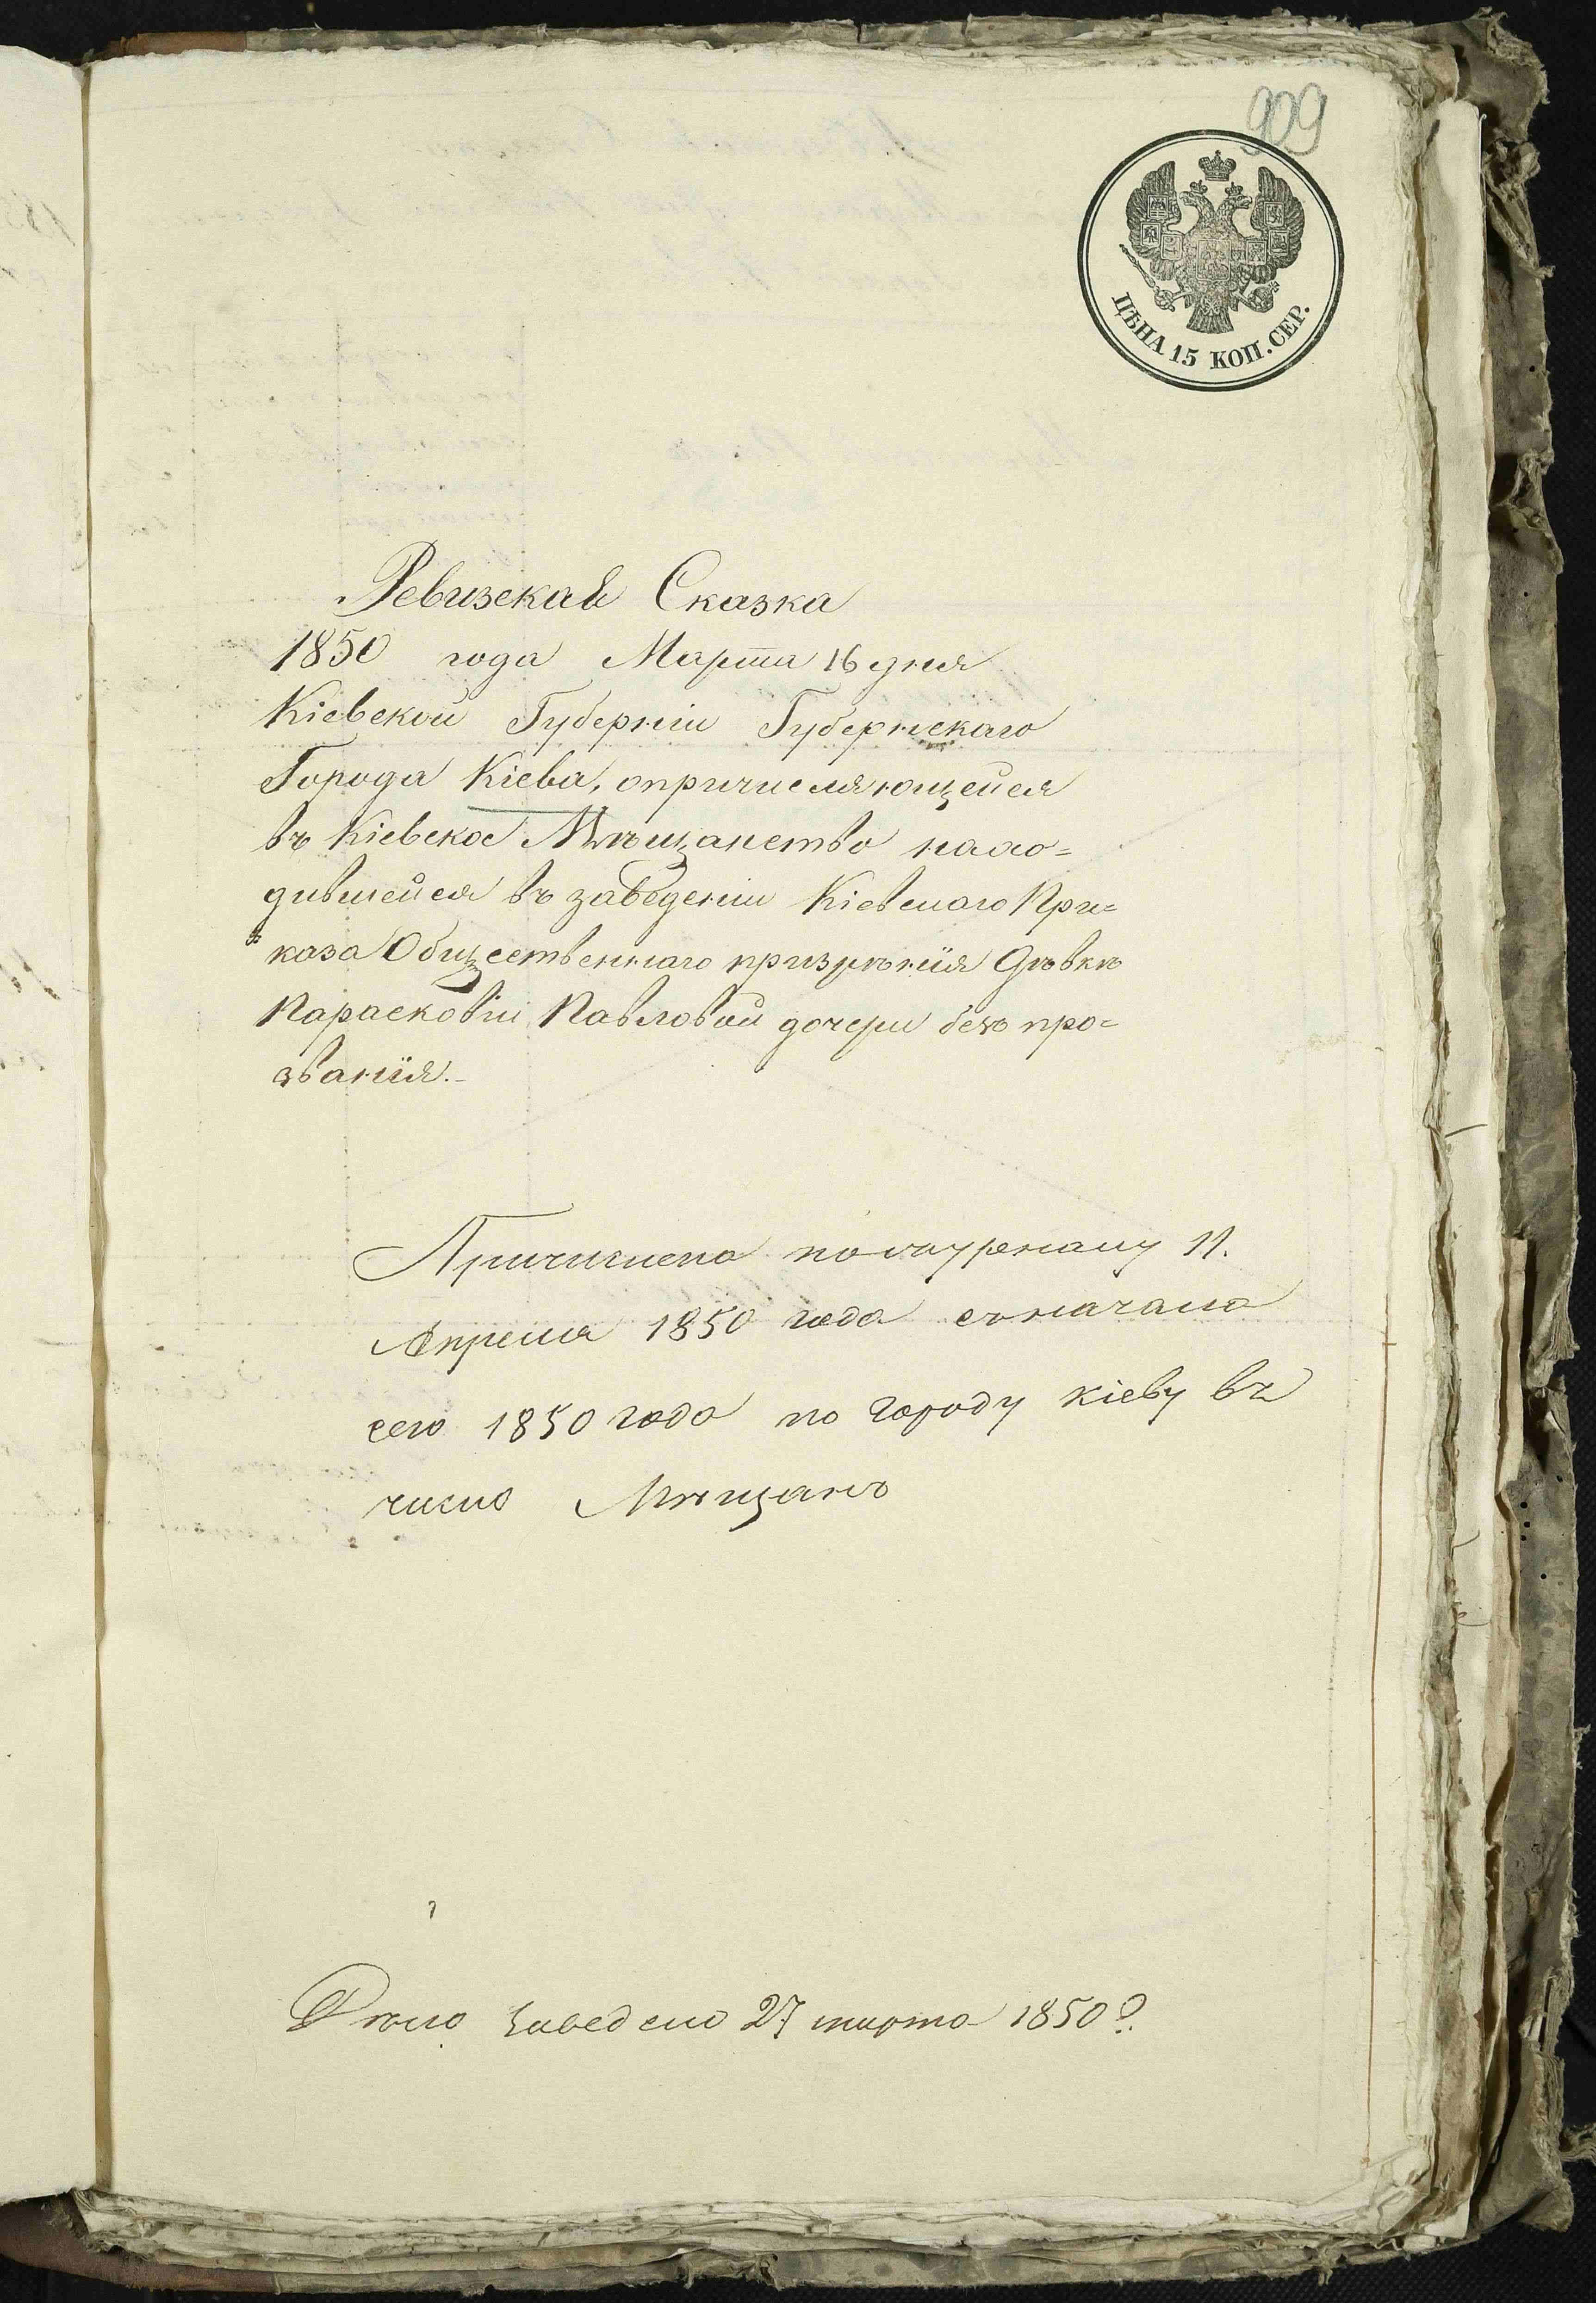 909
ЦѢНА 15 КОП. СЕР.
Ревизская Сказка
1850 года Марта 16 дня
Кіевской Губерніи Губернскаго
Города Кіева, опричисляющейся
въ Кіевское Мѣщанство нахо=
дившейся въ заведеніи Кіевскаго При=
каза Общественнаго призрѣнія Дѣвкѣ
Парасковіи Павловой дочери безъ про=
званія.
Причислена по журналу 11.
Апреля 1850 года съ начала
сего 1850 года по городу Кіеву въ
число Мѣщанъ
Дѣло заведено 27 марта 1850 г.